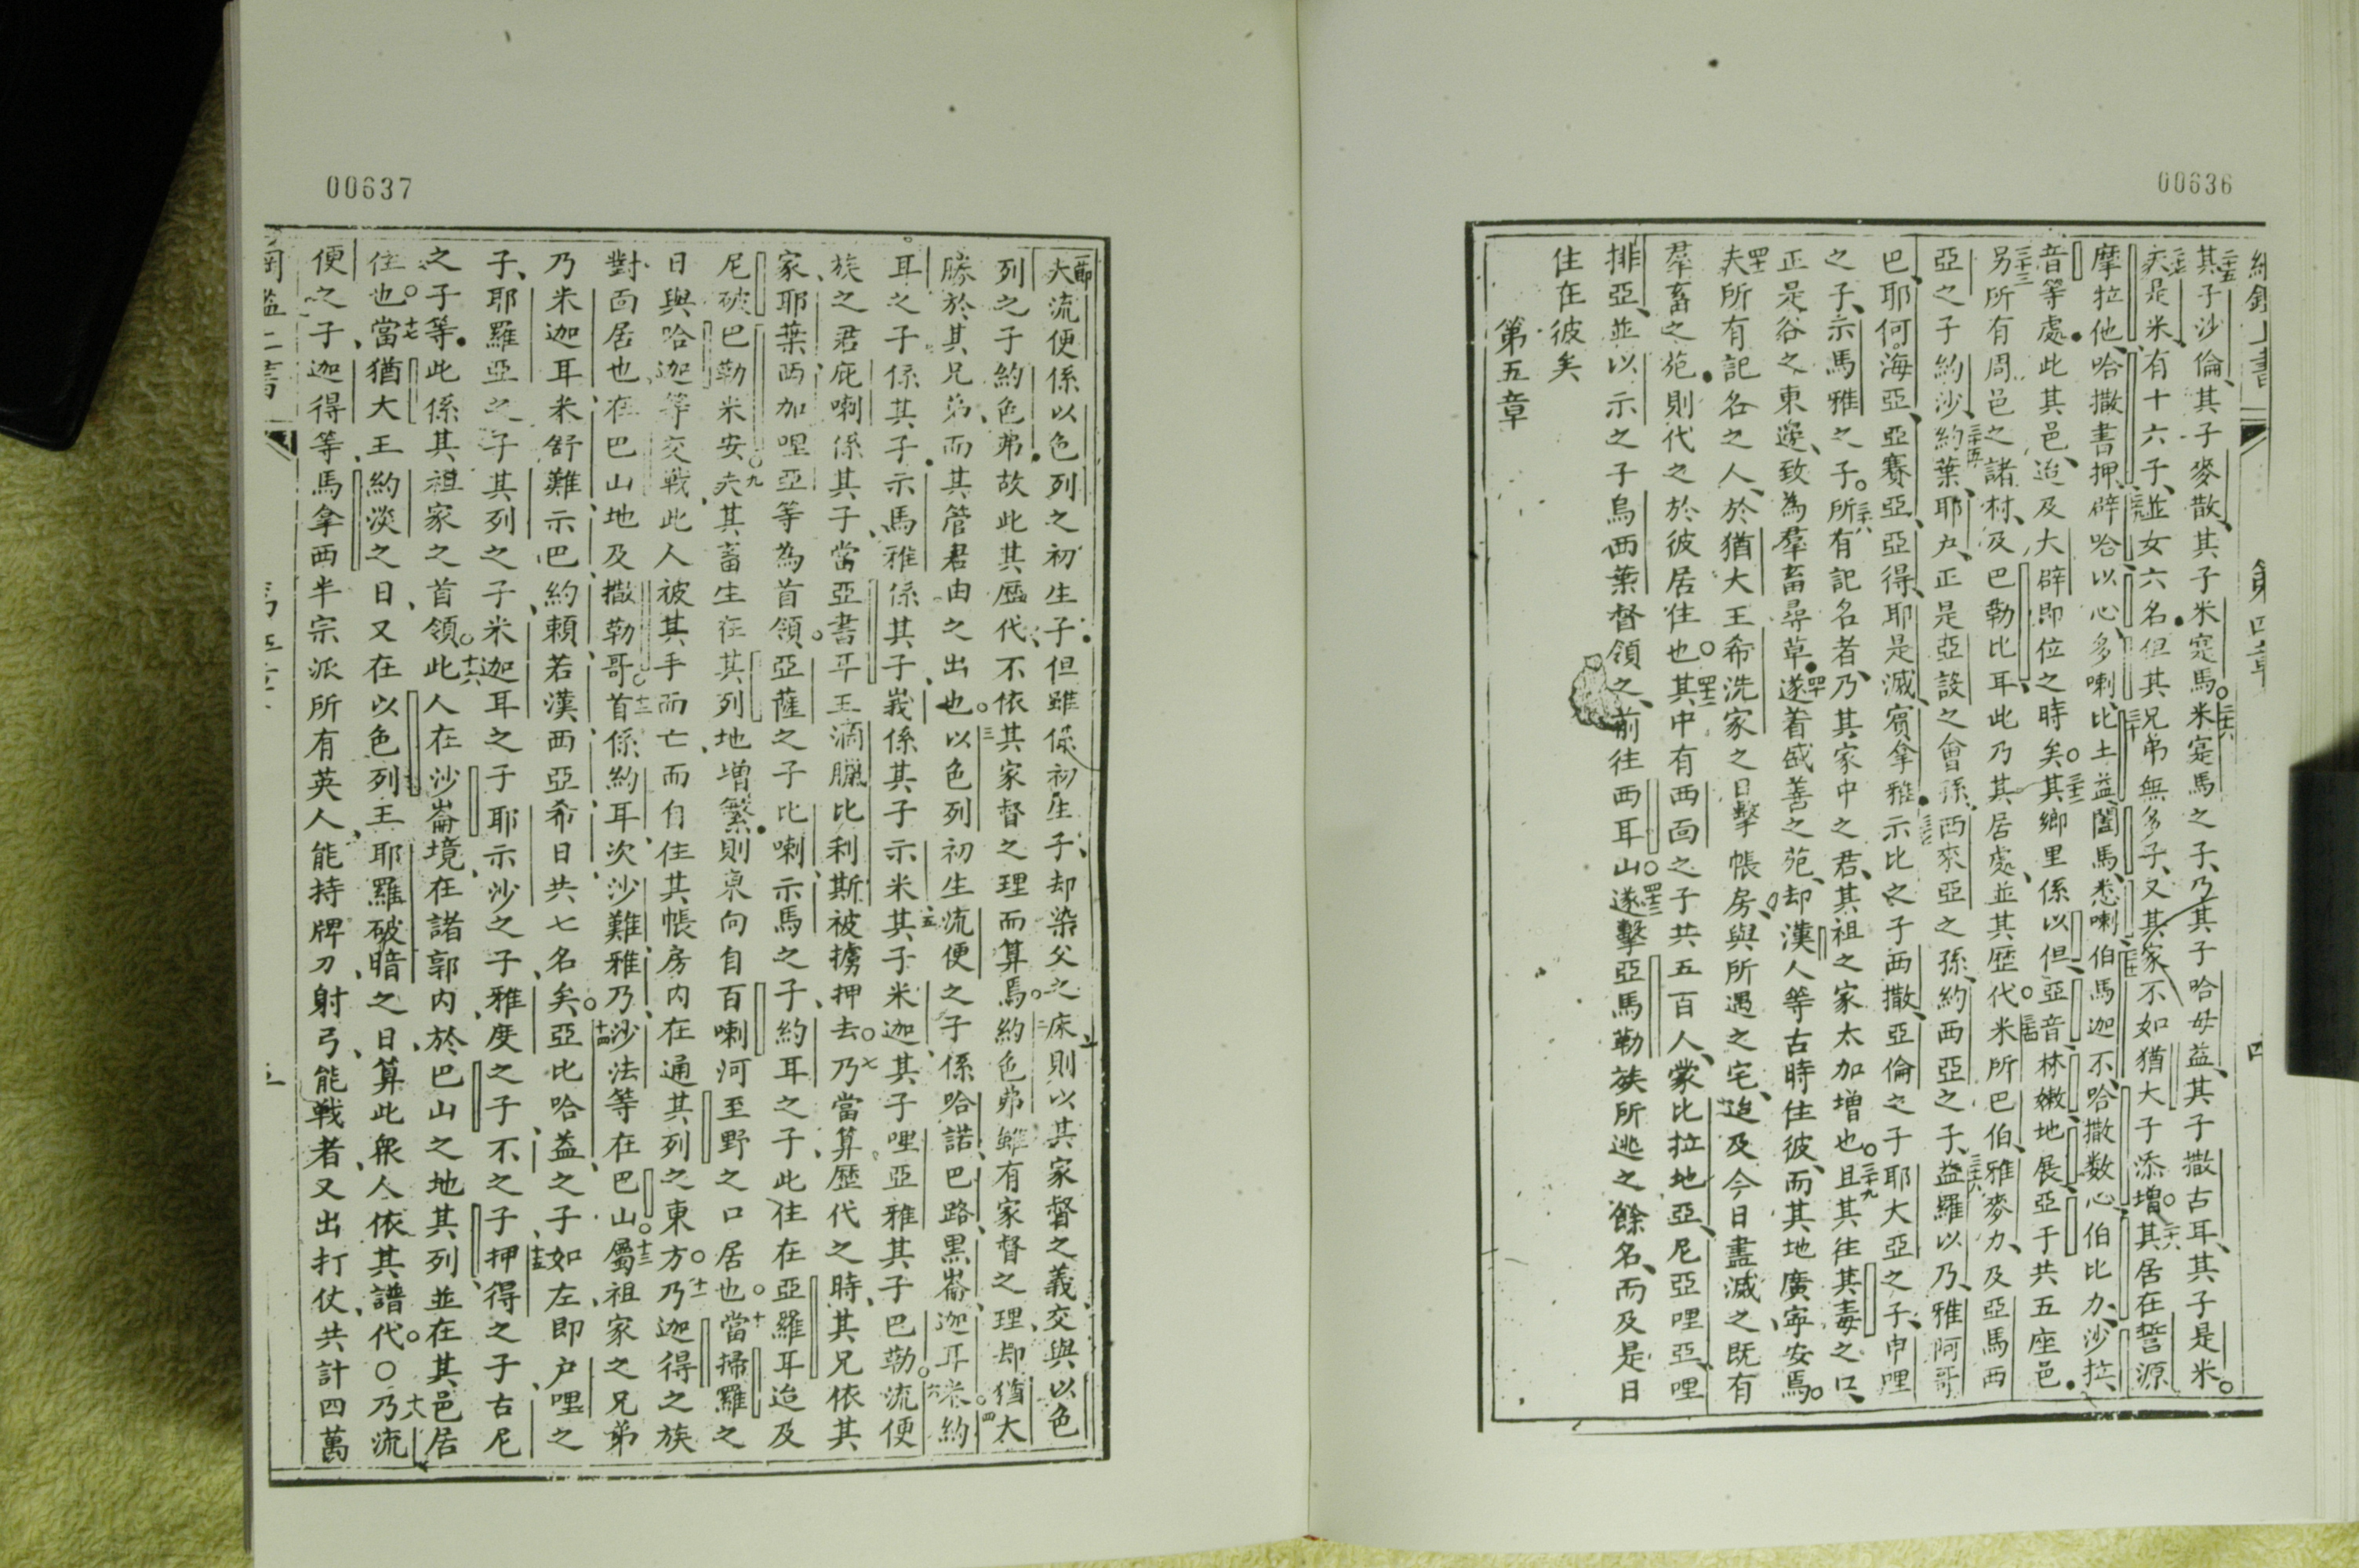 00636
其子沙倫、其子麥散、其子米寔馬。米寔馬之子、乃其子哈母益、其子撒古耳、其子是米。
夫是米有十六子、並女六名但其兄弟無多子、又其家不如猶大子添增。其居在誓源
摩拉他、哈撒書押、辟哈以心多喇、比土益、閽馬、悉喇伯馬迦不、哈撒数心伯比力、沙拉、
音等處此其邑、迨及大辟即位之時矣。其鄉里係以但、亞音、林嫩、地展、亞于共五座邑
另所有周邑之諸村、及巴勒比耳此乃其居處、並其歷代。米所巴伯、雅麥力、及亞馬西
亞之子約沙、約葉、耶户、正是亞設之會孫、西來亞之孫、約西亞之子、益羅以乃、雅阿哥
巴、耶何海亞、亞賽亞、亞得、耶是滅、賓拿雅示比之子西撒、亞倫之子耶大亞之子、申哩
之子、示馬雅之子。所有記名者、乃其家中之君、其祖之家太加增也。且其往其毒之口、
正是谷之東邊、致為羣畜尋草遂着盛善之苑、却漢人等古時住彼、而其地廣寧安馬。
夫所有記名之人、於猶大王希洗家之日擊帳房、與所遇之宅、迨及今日盡滅之既有
羣畜之苑則代之於彼居住也。其中有西面之子共五百人、蒙比拉地亞、尼亞哩亞、哩
排亞、並以示之子烏西葉督領之、前往西耳山。遂擊亞馬勒族所逃之餘名、而及是日
住在彼矣
第五章
00637
夫流便係以色列之初生子但雖係初生子、却染父之床則以其家督之義、交與以色
列之子約色弗故此其歷代、不依其家督之理而算焉。約色弗雖有家督之理、却猶大
勝於其兄弟、而其管君由之出也。以色列初生流便之子係哈諾、巴路、黑崙、迦耳米。約
耳之子係其子示馬雅係其子、峩係其子示米其子米迦其子哩亞雅其子巴勒流便
族之君庇喇係其子、當亞書耳王滴臘比利斯被擄押去。乃當算歷代之時、其兄依其
家、耶葉西加哩亞等為首領。亞薩之子比喇示馬之子約耳之子此住在亞羅耳迨及
尼破巴勒米安。夫其畜生在其列地增繁則東向自百喇河至野之口居也。當掃羅之
日與哈迦等交戰、此人被其手而亡、而自住其帳房内在通其列之東方。乃迦得之族
對面居也、在巴山地及撒勒哥。首係約耳、次沙難雅、乃沙法等在巴山。屬祖家之兄弟
乃米迦耳、米舒難、示巴、約頼、若漢、西亞、希日共七名矣。亞比哈益之子如左即户哩之
子、耶羅亞之子其列之子、米迦耳之子耶示沙之子、雅度之子不之子押得之子古尼
之子等此係其祖家之首領。此人在沙崙境、在諸郭内於巴山之地其列並在其邑居
住也。當猶大王約淡之日、又在以色列王耶羅破暗之日、算此衆人依其譜代。〇乃流
便之子迦得等、馬拿西半宗派所有英人、能持牌刀、射弓、能戰者、又出打仗、共計四萬